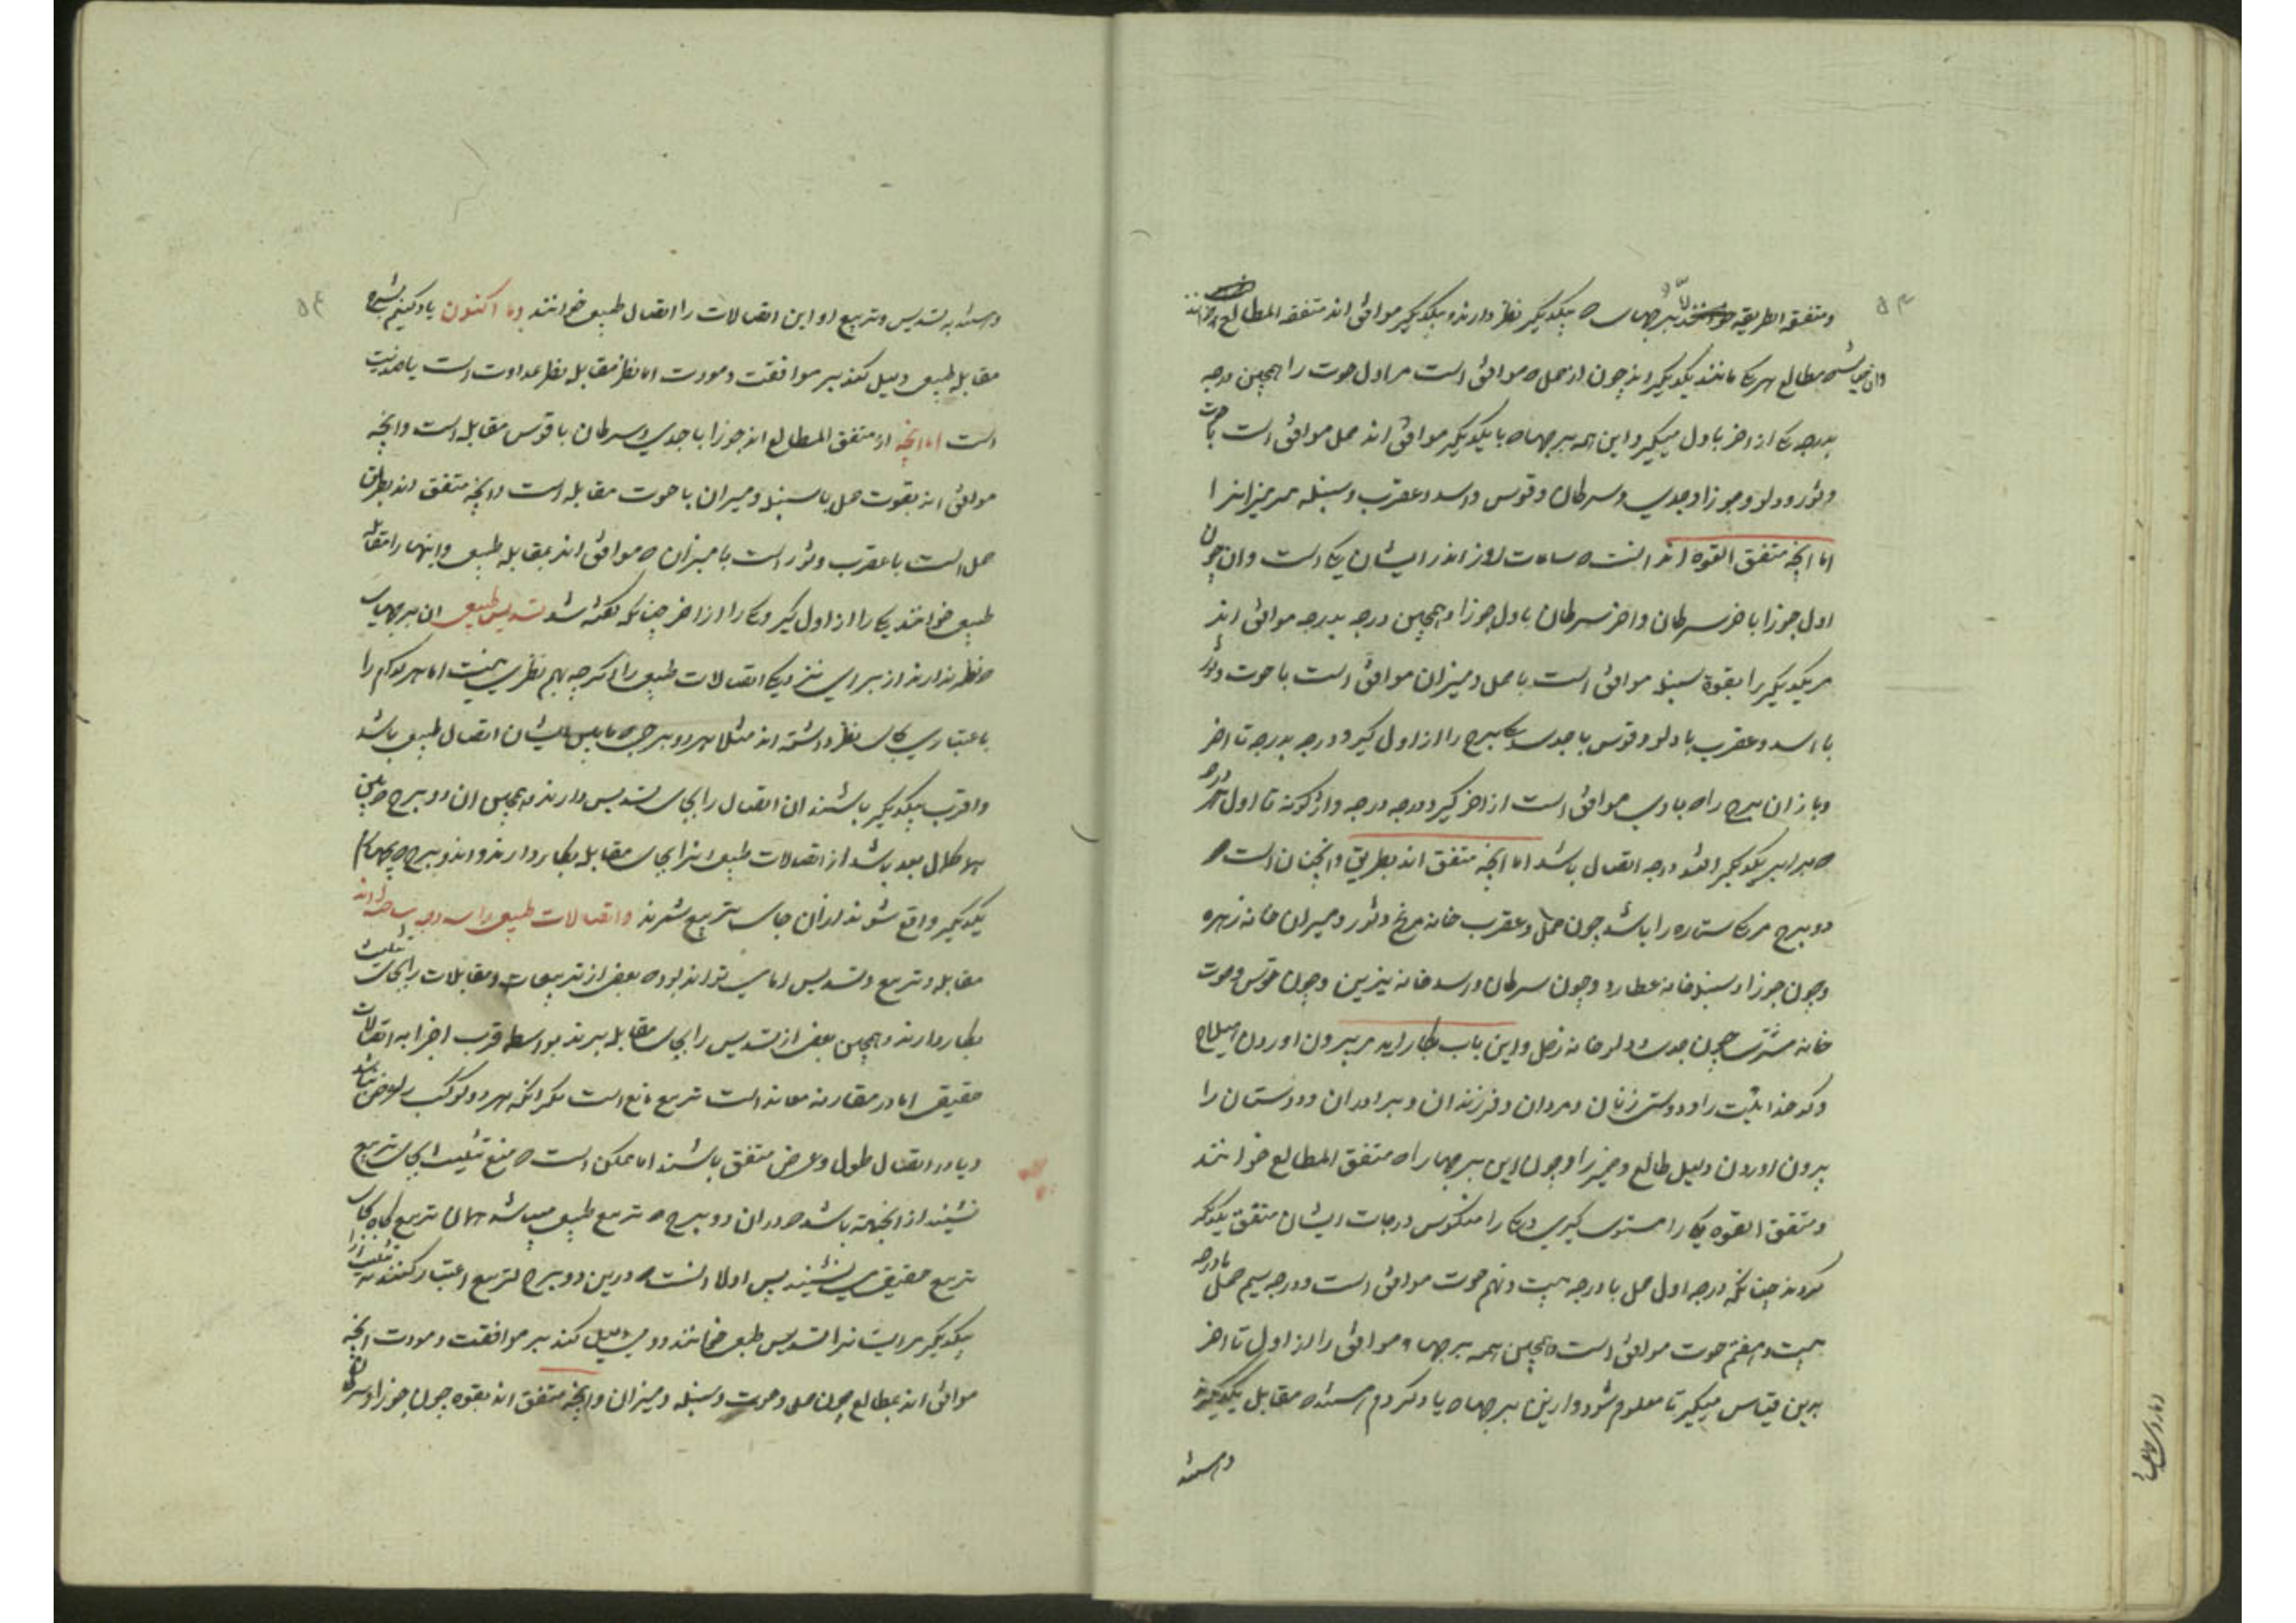 ۵۴
ومتفقة الطریقه اما برجهای که بیکدیگر نظر دارند و بیکدیگر موافق اند متفقة المطالع خوانند
وان چنان باشد مطالع هر یکی مانند یکدیگر اند چون از حمل که موافق است مر اول حوت را همچنین درجه
بدرجه یکی از اخر باول میگیر و این همه برجها که با یکدیگر موافق اند حمل موافق است با حوت
وثور ودلو وجوزا وجدی وسرطان وقوس واسد وعقرب وسنبله مر میزانرا
اما انچه متفق القوه اند انست که ساعات روز اندر ایشان یکی است وان چون
اول جوزا باخر سرطان واخر سرطان باول جوزا وهمچنین درجه بدرجه موافق اند
مر یکدیگر را بقوة سنبله موافق است با حمل ومیزان موافق است با حوت وثور
با اسد وعقرب با دلو وقوس با جدی یکی برج را از اول گیر ودرجه بدرجه تا اخر
وباز ان برج را که با وی موافق است از اخر گیر ودرجه درجه واژگونه تا اول هر درجه
که برابر یکدیگر افتد درجه اتصال باشد اما انچه متفق اند بطریق وانچنان است که
دو برج مر یک ستاره را باشد چون حمل وعقرب خانه مریخ وثور ومیزان خانه زهره
وچون جوزا وسنبله خانه عطارد وچون سرطان واسد خانه نیرین وچون قوس وحوت
خانه مشتری چون جدی ودلو خانه زحل واین باب بکار اید مر بیرون اوردن هیلاج
وکدخدا را ودوستی زنان ومردان وفرزندان وبرادران ودوستان را
بیرون اوردن دلیل طالع را وچون این برجها را که متفق المطالع خوانند
ومتفق القوه یکی را مستوی گیری ودیگر را منکوس درجات ایشان متفق یکدیگر
گردند چنانکه درجه اول حمل با درجه بیست ونهم حوت موافق است ودرجه سیم حمل با درجه
بیست وهفتم حوت موافق است وهمچنین همه برجها موافق را از اول تا اخر
برین قیاس میگیر تا معلوم شود وازین برجها که یاد کردم هستند که مقابل یکدیگرند
وهستند
۵۴
وهستند به تسدیس وتربیع او این اتصالات را اتصال طبیعی خوانند وما اکنون یاد کنیم بشرح
مقابله طبیعی دلیل کند بر موافقت ومودت اما نظر مقابله نظر عداوت است یا ضدیت
است اما انچه از متفق المطالع اند جوزا با جدی وسرطان با قوس مقابله است وانچه
موافق اند بقوت حمل با سنبله ومیزان با حوت مقابله است وانچه متفق اند بطریق
حمل است با عقرب وثور است با میزان که موافق اند بمقابله طبیعی واینها را مقابله
طبیعی خوانند یکی را از اول گیر ویکی را از اخر چنانکه گفته شد تسدیس طبیعی ان برجهای
که نظر ندارند از برای نزدیکی اتصالات طبیعی را اگرچه بهم نظری نیست اما هر کدام را
باعتباری بجای نظر داشته اند مثلا هر دو برجی که مابین ایشان اتصال طبیعی باشد
واقرب بیکدیگر باشند ان اتصال را بجای تسدیس دارند وهمچنین ان دو برج
بعد باشد از اتصالات طبیعی انرا بجای مقابله بکار دارند واندو برج که بچهارم
یکدیگر واقع شوند انرا بجای تربیع شمرند واتصالات طبیعی را سه
مقابله وتربیع وتسدیس اما می تواند بود که بعضی از تربیعات ومقابلات را بجای تثلیث
بکار دارند وهمچنین بعضی از تسدیس را بجای مقابله برند بواسطه قرب اجزا به اتصالات
حقیقی اما در مقارنه تربیع مانع است مگر انکه هر دو کوکب عرض نباشد
ویا در اتصال طول وعرض متفق باشند اما ممکن است که تثلیث بجای تربیع
نشیند از انجهة باشد که در ان دو برج که تربیع طبیعی میباشد همان تربیع بجای
تربیع حقیقی می نشیند پس اولا انست که درین دو برج تربیع اعتبار کنند نه تثلیث
یکدیگر مر ایشانرا تسدیس طبیعی خوانند ودلیل کند بر موافقت ومودت انچه
موافق اند بمطالع چون حمل وحوت وسنبله ومیزان وانچه متفق اند بقوه چون جوزا وسرطان